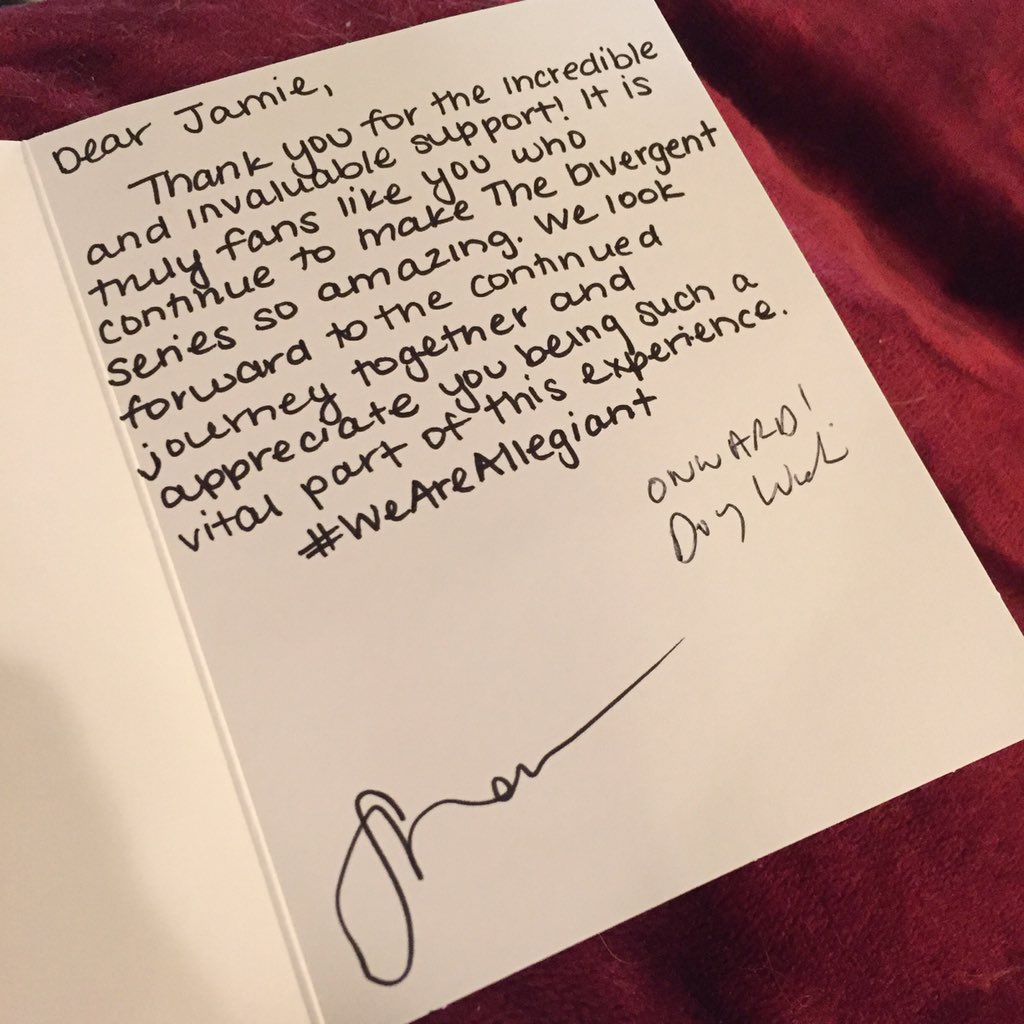 Dear Jamie,
Thank you for the incredible
and invaluable support! It is
truly fans like you who
continue to make The Divergent
series so amazing. We look
forward to the continued
journey together and
appreciate you being such a
vital part of this experience.
#WeAreAllegiant
ONWARD!